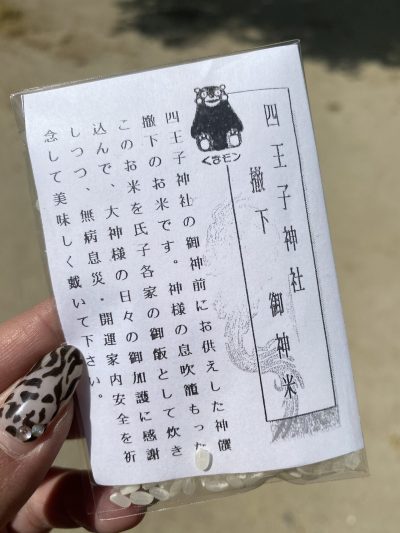 四王子神社
撤下 御神米
くまモン
四王子神社の御神前にお供えした神饌
撤下のお米です。神様の息吹籠もった
このお米を氏子各家の御飯として炊き
込んで、大神様の日々の御加護に感謝
しつつ、無病息災・開運家内安全を祈
念して美味しく戴いて下さい。